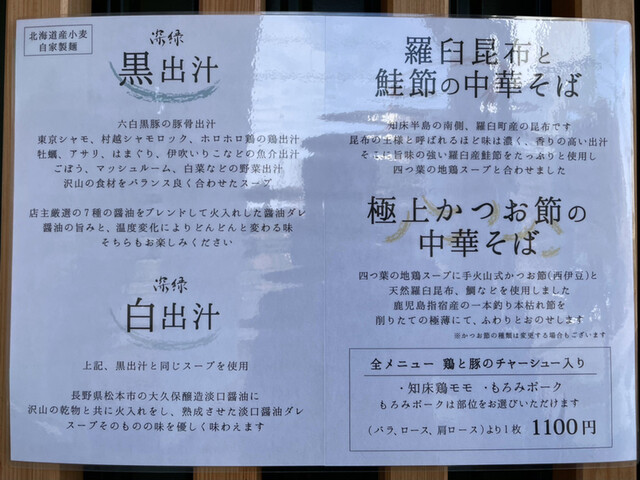 北海道産小麦
自家製麺
深緑
黒出汁
六白黒豚の豚骨出汁
東京シャモ、村越シャモロック、ホロホロ鶏の鶏出汁
牡蠣、アサリ、はまぐり、伊吹いりこなどの魚介出汁
ごぼう、マッシュルーム、白菜などの野菜出汁
沢山の食材をバランス良く合わせたスープ
店主厳選の7種の醤油をブレンドして火入れした醤油ダレ
醤油の旨みと、温度変化によりどんどんと変わる味
そちらもお楽しみください
深緑
白出汁
上記、黒出汁と同じスープを使用
長野県松本市の大久保醸造淡口醤油に
沢山の乾物と共に火入れをし、熟成させた淡口醤油ダレ
スープそのものの味を優しく味わえます
羅臼昆布と
鮭節の中華そば
知床半島の南側、羅臼町産の昆布です
昆布の王様と呼ばれるほど味は濃く、香りの高い出汁
そこに旨味の強い羅臼産鮭節をたっぷりと使用し
四つ葉の地鶏スープと合わせました
極上かつお節の
中華そば
四つ葉の地鶏スープに手火山式かつお節(西伊豆)と
天然羅臼昆布、鯛などを使用しました
鹿児島指宿産の一本釣り本枯れ節を
削りたての極薄にて、ふわりとのせします
※かつお節の種類は変更する場合もございます
全メニュー 鶏と豚のチャーシュー入り
・知床鶏モモ ・もろみポーク
もろみポークは部位をお選びいただけます
(バラ、ロース、肩ロース)より1枚 1100円